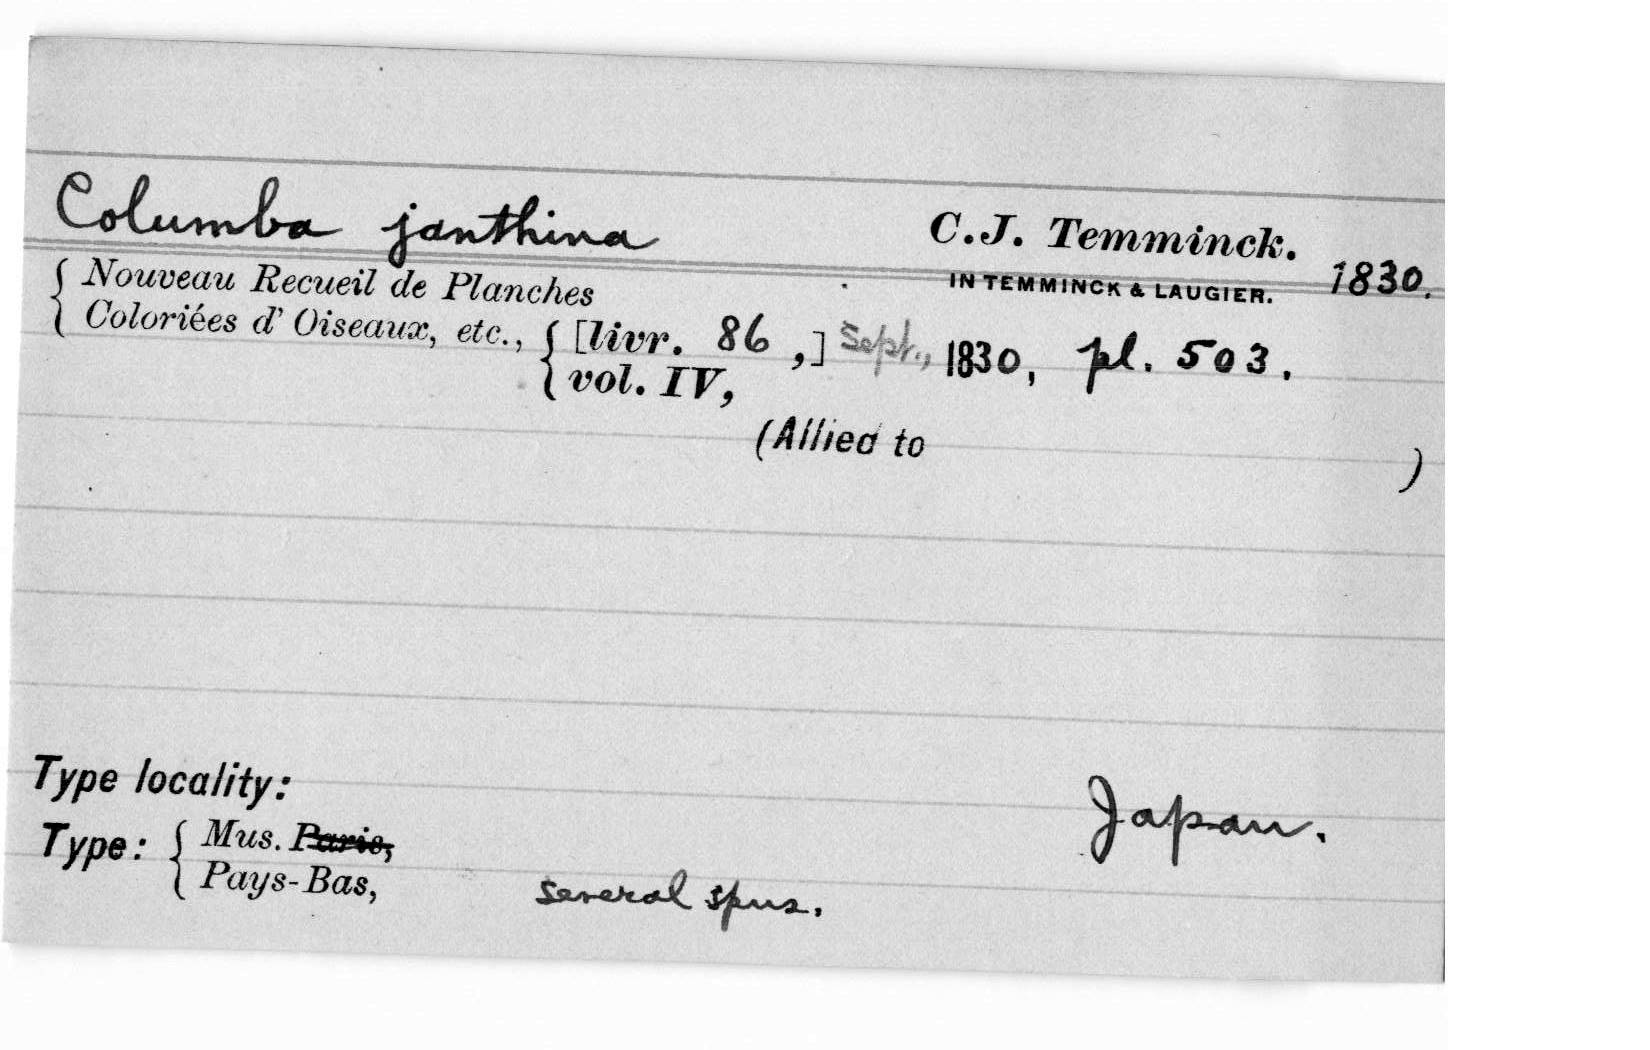 Columba janthina C.J. Temminck.
IN TEMMINCK & LAUGIER. 1830.
{ Nouveau Recueil de Planches
{ Coloriées d' Oiseaux, etc., { [livr. 86 ,] Sept., 1830, pl. 503.
{ vol. IV,
(Allied to )
Type locality: Japan.
Type: { Mus. Paris,
{ Pays-Bas, several spns.